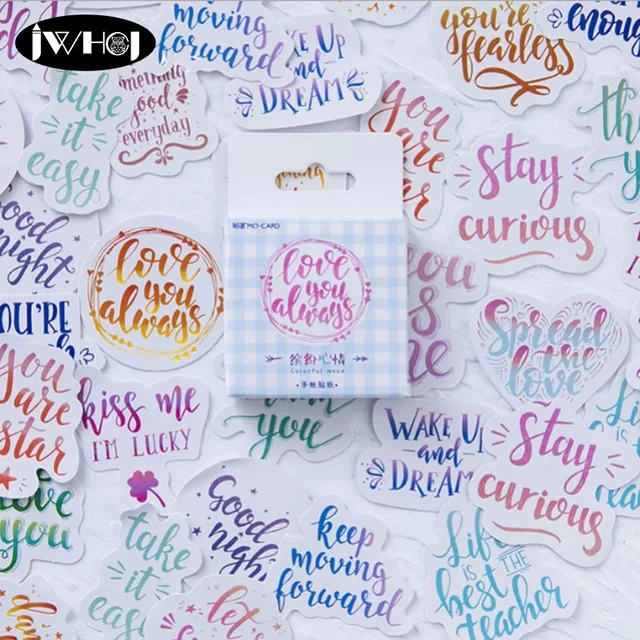 JWHCJ
moving
forward
WAKE UP
and
DREAM
you're
fearless
enough
take
it
easy
something
good
everyday
you
are
Stay
curious
Good
night
love
you
always
MO·CARD
love
you
always
缤纷心情
Colorful mood
·手帐贴纸·
you
YOU'RE
Spread
the
love
you
are
star
kiss me
I'M LUCKY
you
WAKE UP
and
DREAM
Stay
curious
love
you
Good
night
take
it
easy
keep
moving
forward
Life
IS THE
best
teacher
let's